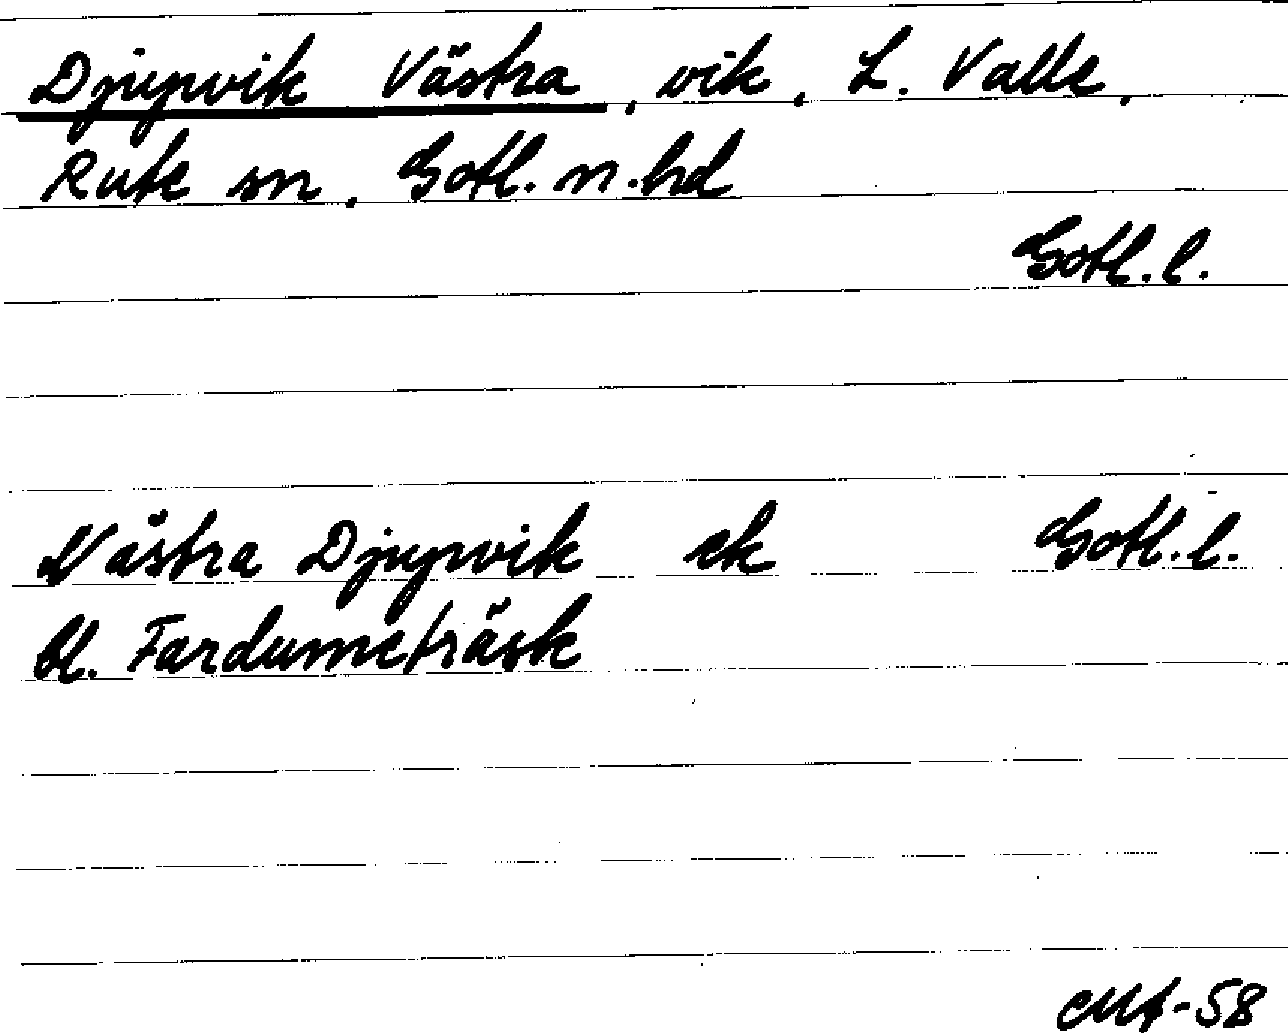 Djupvik Västra, vik, L. Valle,
Rute sn, Gotl. n. hd
Gotl. l.
Västra Djupvik ek Gotl. l.
Bl. Fardumeträsk
-58